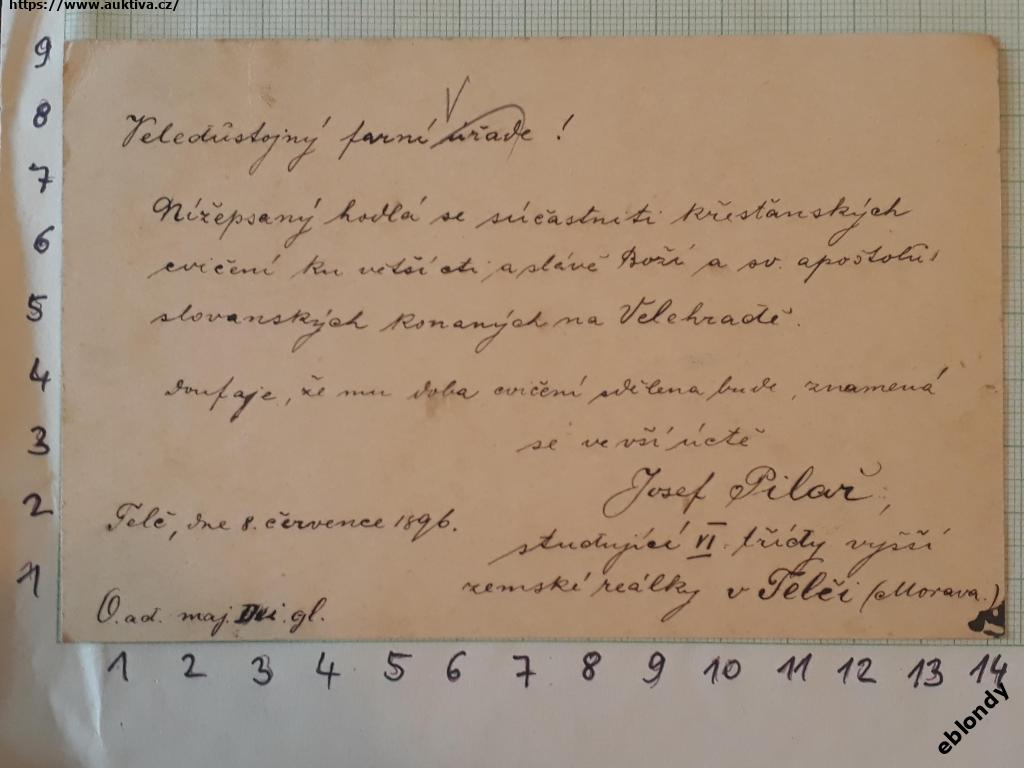 https://www.auktiva.cz/
9
8
7
6
5
4
3
2
1
V
Veledůstojný farní úřade !
Nížepsaný hodlá se súčastniti křesťanských
cvičení ku větší cti a slávě Boží a sv. apoštolů
slovanských konaných na Velehradě.
Doufaje, že mu doba cvičení sdělena bude, znamená
se ve vší úctě
Josef Pilař,
studující VI. třídy vyšší
zemské reálky v Telči (Morava.)
Telč, dne 8. července 1896.
O. ad. maj. Dei. gl.
1 2 3 4 5 6 7 8 9 10 11 12 13 14
eblondy